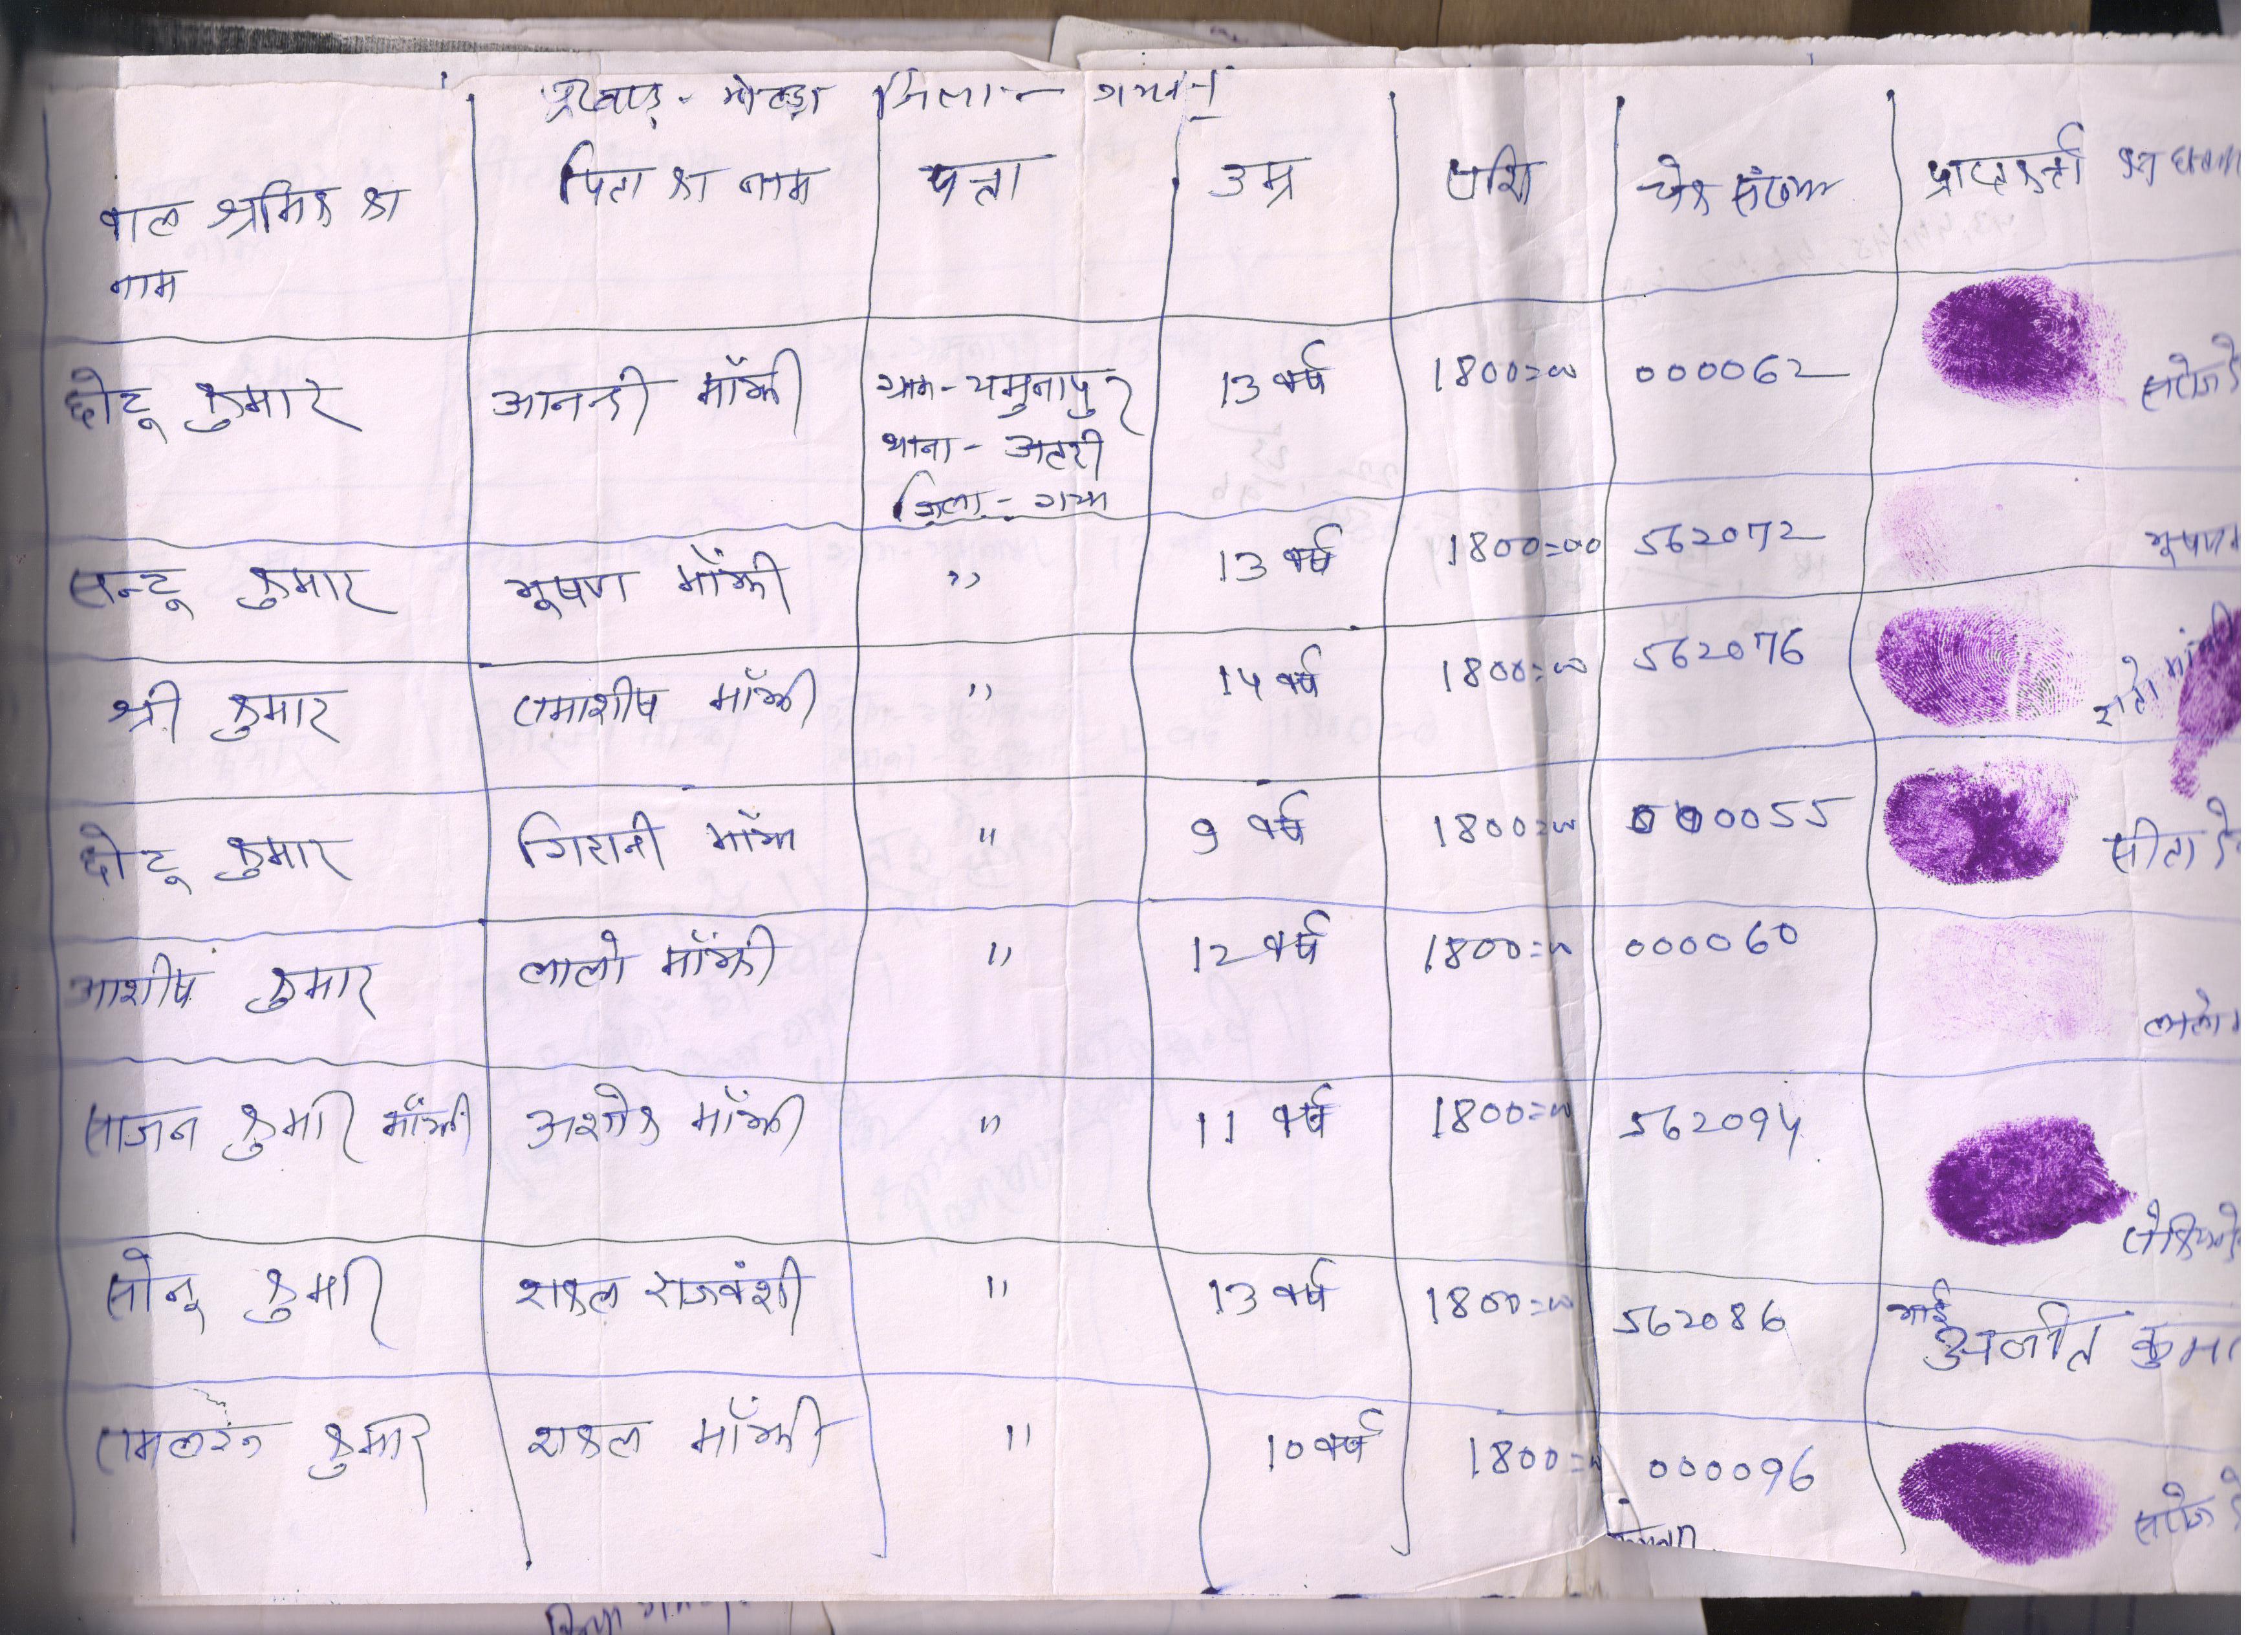 प्रखण्ड - मोहड़ा जिला - गया
बाल श्रमिक का नाम पिता का नाम पत्ता उम्र राशि चेक संख्या प्राप्तकर्ता का
छोटू कुमार आनन्दी माँझी ग्राम - यमुनापुर 13 वर्ष 1800=00 000062 सरोज
थाना - अतरी
जिला - गया
सन्टू कुमार भूषण माँझी " 13 वर्ष 1800=00 562072 भूषण
श्री कुमार रामाशीष माँझी " 14 वर्ष 1800=00 562076
छोटू कुमार गिरानी माँझी " 9 वर्ष 1800=00 000055 सीता
आशीष कुमार लालो माँझी " 12 वर्ष 1800=00 000060 लालो
राजन कुमार माँझी अशोक माँझी " 11 वर्ष 1800=00 562094
सोनू कुमार शकल राजवंशी " 13 वर्ष 1800=00 562086 भाई अजीत कुमा
कुमार शकल माँझी " 10 वर्ष 1800= 000096 सरोज